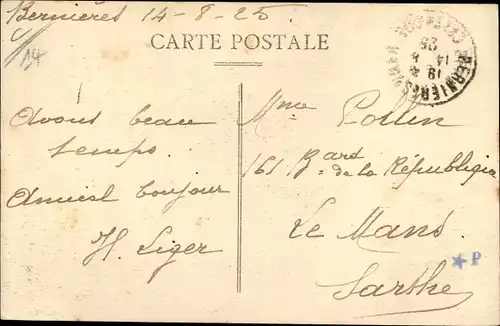 Bernières 14-8-25.
CARTE POSTALE
14
Avons beau
temps.
Amical bonjour
H. Liger
Mme Pollin
161 Bard de la République
Le Mans.
Sarthe
BERNIERES
19 14
8
25
*P